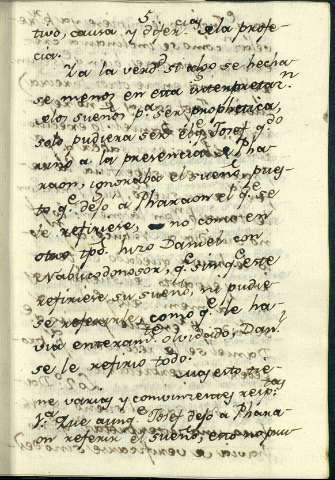 tivo, causa y difer.s cias dela profe-
cia.
Ya la verd.d si algo se hecha-
se menos en esta interpretac.n
delos sueños p.a ser prophetica,
solo pudiera ser el q.e Josef q.do
a la presencia de Pha-
raon, ignoraba el sueño, pues-
to q.e dejo a Pharaon el q.e se
le refiriese, no como en
otro tpo. hizo Daniel con
Nabucodonosor, q.e sin q.e este
refiriese su sueño, ni pudie-
se referirle, como q.e le ha-
via enteram.te olvidado, Dan.l
se le refirio todo.
Mas esto tie-
ne varias y convincentes resp.tas
1.a Que aunq.e Josef dejo a Phara-
on referir el sueño, esto no pru-